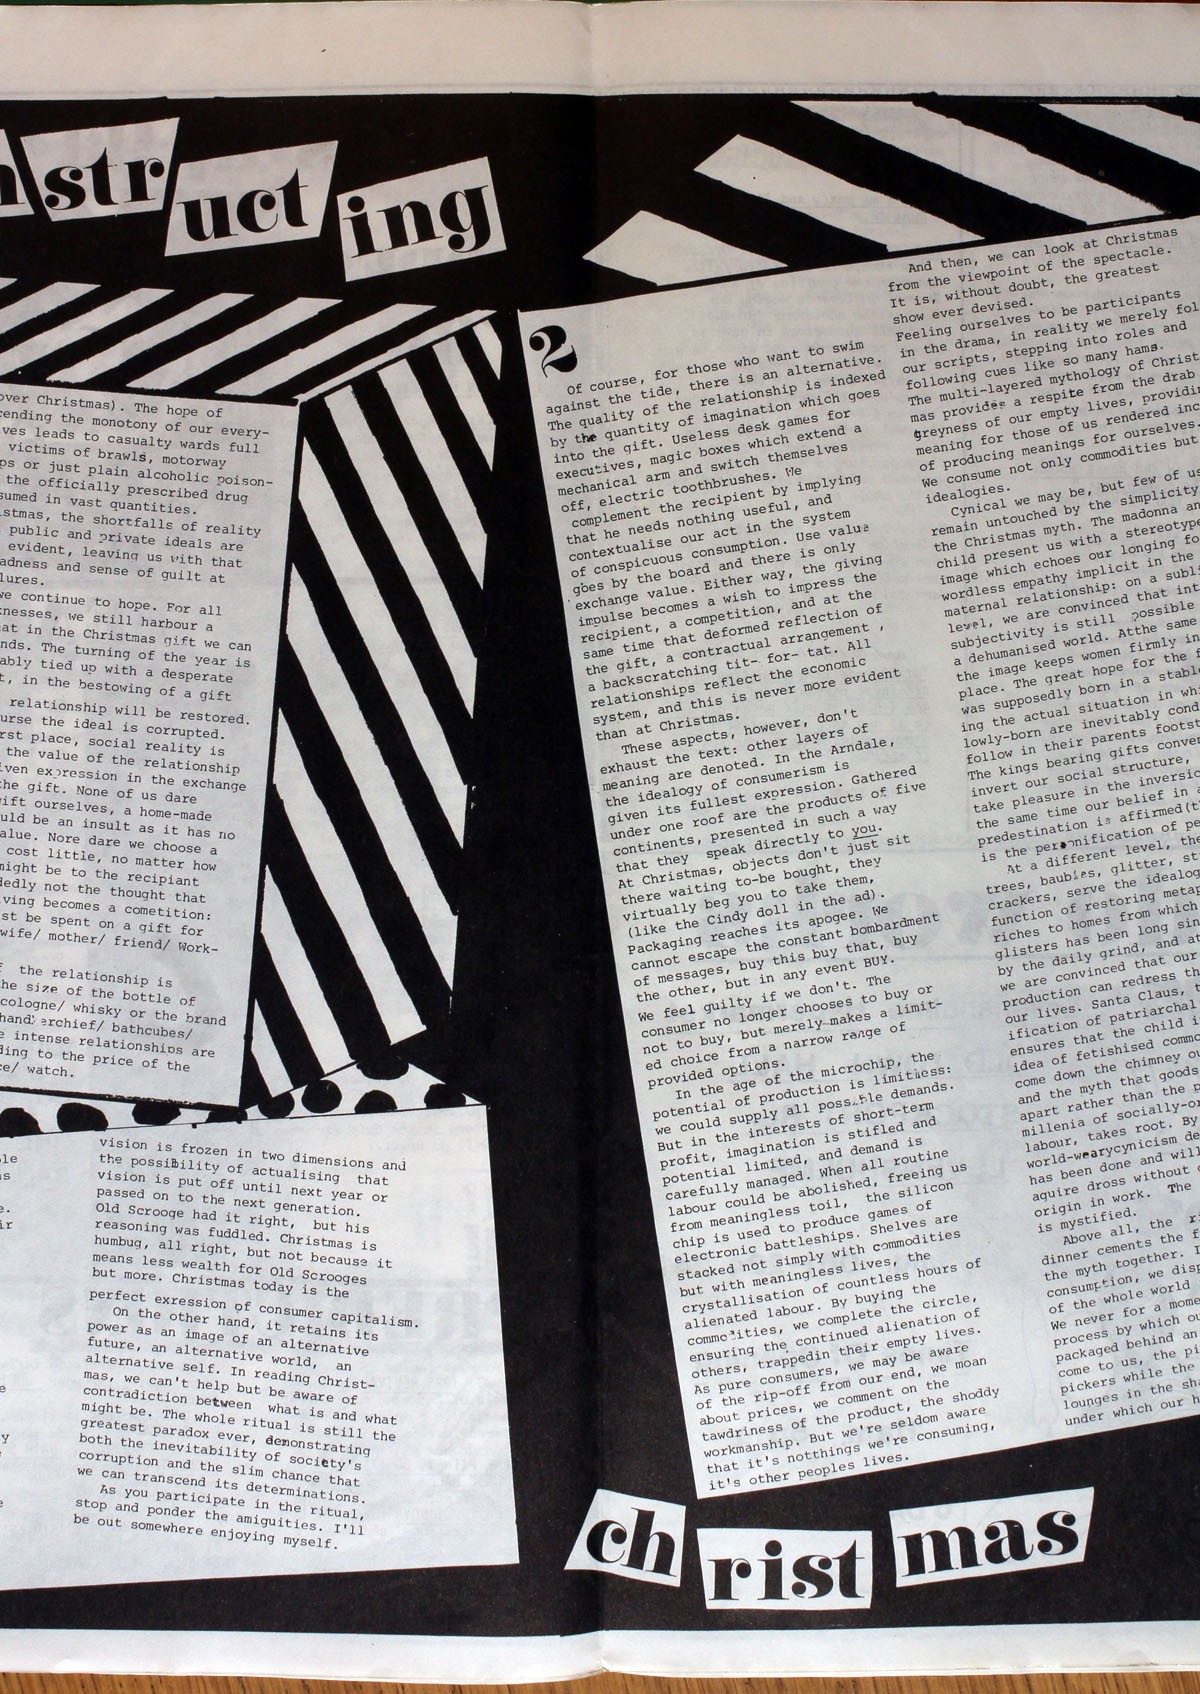 nstructing
over Christmas). The hope of
cending the monotony of our every-
ves leads to casualty wards full
victims of brawls, motorway
ps or just plain alcoholic poison-
the officially prescribed drug
sumed in vast quantities.
istmas, the shortfalls of reality
public and private ideals are
evident, leaving us with that
adness and sense of guilt at
lures.
we continue to hope. For all
knesses, we still harbour a
at in the Christmas gift we can
nds. The turning of the year is
ably tied up with a desperate
t, in the bestowing of a gift
relationship will be restored.
urse the ideal is corrupted.
rst place, social reality is
the value of the relationship
iven expression in the exchange
the gift. None of us dare
gift ourselves, a home-made
uld be an insult as it has no
alue. Nore dare we choose a
cost little, no matter how
might be to the recipiant
dedly not the thought that
iving becomes a cometition:
st be spent on a gift for
wife/ mother/ friend/ Work-
f the relationship is
the size of the bottle of
cologne/ whisky or the brand
handkerchief/ bathcubes/
e intense relationships are
ding to the price of the
ce/ watch.
vision is frozen in two dimensions and
the possibility of actualising that
vision is put off until next year or
passed on to the next generation.
Old Scrooge had it right, but his
reasoning was fuddled. Christmas is
humbug, all right, but not because it
means less wealth for Old Scrooges
but more. Christmas today is the
perfect exression of consumer capitalism.
On the other hand, it retains its
power as an image of an alternative
future, an alternative world, an
alternative self. In reading Christ-
mas, we can't help but be aware of
contradiction between what is and what
might be. The whole ritual is still the
greatest paradox ever, demonstrating
both the inevitability of society's
corruption and the slim chance that
we can transcend its determinations.
As you participate in the ritual,
stop and ponder the amiguities. I'll
be out somewhere enjoying myself.
2
Of course, for those who want to swim
against the tide, there is an alternative.
The quality of the relationship is indexed
by the quantity of imagination which goes
into the gift. Useless desk games for
executives, magic boxes which extend a
mechanical arm and switch themselves
off, electric toothbrushes. We
complement the recipient by implying
that he needs nothing useful, and
contextualise our act in the system
of conspicuous consumption. Use value
goes by the board and there is only
exchange value. Either way, the giving
impulse becomes a wish to impress the
recipient, a competition, and at the
same time that deformed reflection of
the gift, a contractual arrangement ,
a backscratching tit- for- tat. All
relationships reflect the economic
system, and this is never more evident
than at Christmas.
These aspects, however, don't
exhaust the text: other layers of
meaning are denoted. In the Arndale,
the idealogy of consumerism is
given its fullest expression. Gathered
under one roof are the products of five
continents, presented in such a way
that they speak directly to you.
At Christmas, objects don't just sit
there waiting to-be bought, they
virtually beg you to take them,
(like the Cindy doll in the ad).
Packaging reaches its apogee. We
cannot escape the constant bombardment
of messages, buy this buy that, buy
the other, but in any event BUY.
We feel guilty if we don't. The
consumer no longer chooses to buy or
not to buy, but merely makes a limit-
ed choice from a narrow range of
provided options.
In the age of the microchip, the
potential of production is limitless:
we could supply all possible demands.
But in the interests of short-term
profit, imagination is stifled and
potential limited, and demand is
carefully managed. When all routine
labour could be abolished, freeing us
from meaningless toil, the silicon
chip is used to produce games of
electronic battleships. Shelves are
stacked not simply with commodities
but with meaningless lives, the
crystallisation of countless hours of
alienated labour. By buying the
commodities, we complete the circle,
ensuring the continued alienation of
others, trappedin their empty lives.
As pure consumers, we may be aware
of the rip-off from our end, we moan
about prices, we comment on the
tawdriness of the product, the shoddy
workmanship. But we're seldom aware
that it's notthings we're consuming,
it's other peoples lives.
And then, we can look at Christmas
from the viewpoint of the spectacle.
It is, without doubt, the greatest
show ever devised.
Feeling ourselves to be participants
in the drama, in reality we merely fol
our scripts, stepping into roles and
following cues like so many hams.
The multi-layered mythology of Christ
mas provides a respite from the drab
greyness of our empty lives, providi
meaning for those of us rendered inc
of producing meanings for ourselves.
We consume not only commodities but
idealogies.
Cynical we may be, but few of us
remain untouched by the simplicity
the Christmas myth. The madonna an
child present us with a stereotype
image which echoes our longing fo
wordless empathy implicit in the
maternal relationship: on a subli
level, we are convinced that int
subjectivity is still possible
a dehumanised world. Atthe same
the image keeps women firmly in
place. The great hope for the f
was supposedly born in a stable
ing the actual situation in whi
lowly-born are inevitably cond
follow in their parents footst
The kings bearing gifts conver
invert our social structure,
take pleasure in the inversio
the same time our belief in a
predestination is affirmed(t
is the personification of pe
At a different level, the
trees, baubles, glitter, st
crackers, serve the idealog
function of restoring metap
riches to homes from which
glisters has been long sin
by the daily grind, and at
we are convinced that our
production can redress th
our lives. Santa Claus, t
ification of patriarchal
ensures that the child i
idea of fetishised commo
come down the chimney ou
and the myth that goods
apart rather than the p
millenia of socially-or
labour, takes root. By
world-wearycynicism de
has been done and will
aquire dross without
origin in work. The
is mystified.
Above all, the ri
dinner cements the f
the myth together. I
consumption, we disp
of the whole world
We never for a mome
process by which ou
packaged behind an
come to us, the pi
pickers while the
lounges in the sha
under which our h
christmas